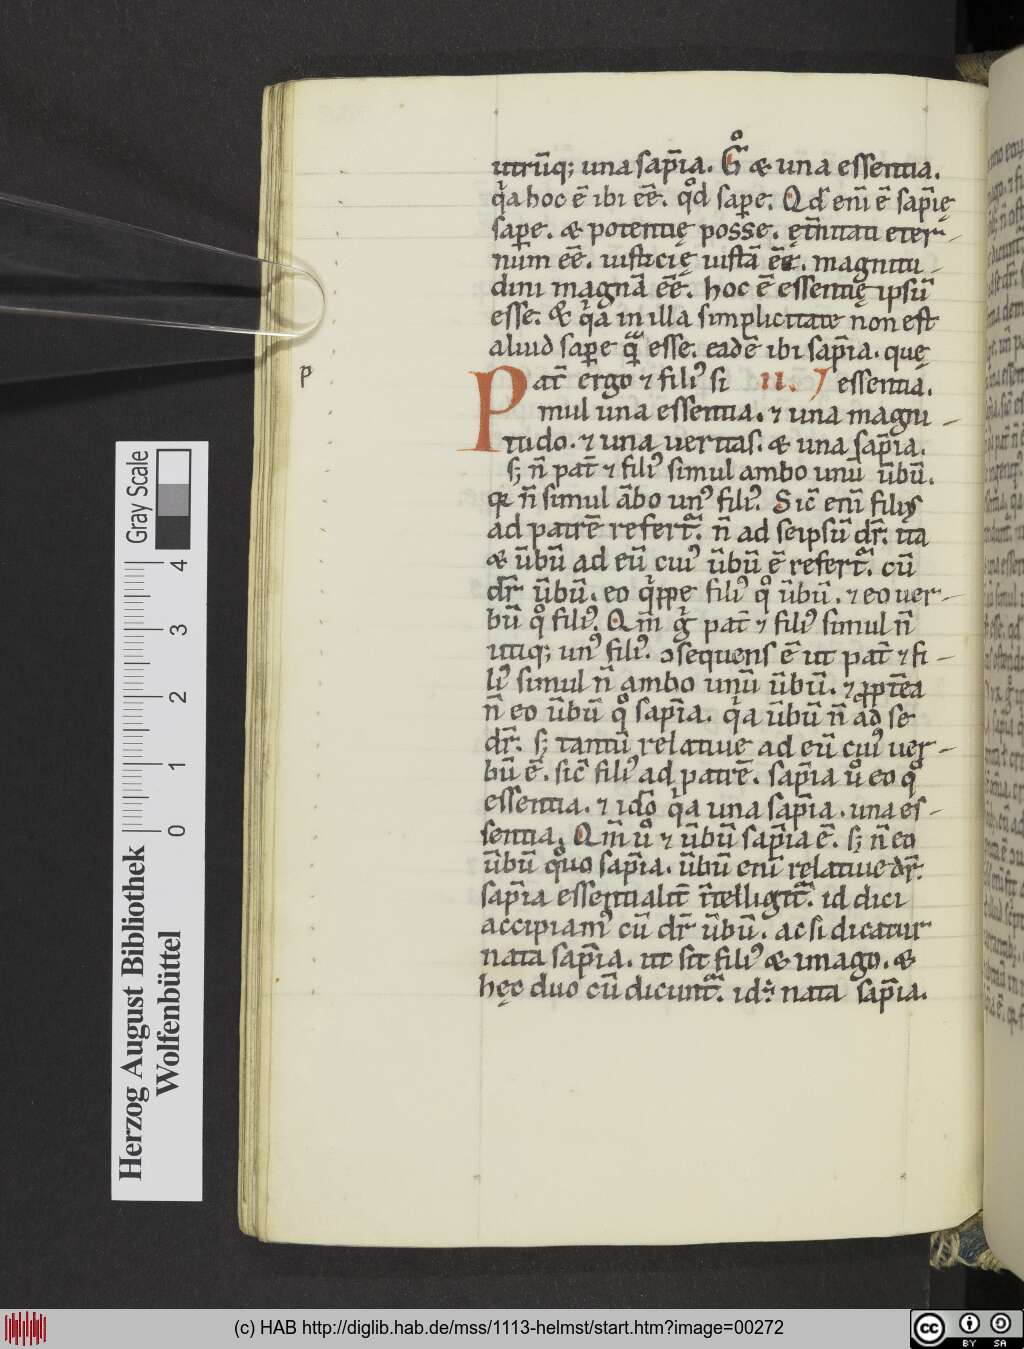 utrūq; una sap̄ia. Gͦ & una essentia.
qͥa hoc ē ibi eē. qͦd sap̱e. Qđ eni ē sap̄ię
sap̱e. & potentię posse. ęt̄nitati eter-
num eē. iusticię iustā eē. magnitu-
dini magnā eē. hoc ē essentię ipsū
esse. & qͥa in illa simplicitate non est
aliud sap̱e qᷓ esse. eadē ibi sap̄ia. quę
Pat̄ ergo ⁊ filiꝰ si II. essentia.
p
mul una essentia. ⁊ una magni-
tudo. ⁊ una ueritas. & una sap̄ia.
s; n̄ pat̄ ⁊ filiꝰ simul ambo unū ūbū.
qꝛ n̄ simul ābo unꝰ filiꝰ. Sic̄ enī filiꝰ
ad patrē refertᷓ. n̄ ad seipsū dr̄. ita
& ūbū ad eū cuiꝰ ūbū ē refertᷓ. cū
dr̄ ūbū. eo qͥppe filiꝰ qͦ ūbū. ⁊ eo uer-
bū qͦ filiꝰ. Qm̄ gͥ pat̄ ⁊ filiꝰ simul n̄
utiq; unꝰ filiꝰ. ↄsequens ē ut pat̄ ⁊ fi-
liꝰ simul n̄ ambo unū ūbū. ⁊ ꝓpt̄ea
n̄ eo ūbū qͦ sap̄ia. qͥa ūbū n̄ ad se
dr̄. s; tantū relatiue ad eū cuiꝰ uer-
bū ē. sic̄ filiꝰ ad patrē. sap̄ia uͦ eo qͦ
essentia. ⁊ idō qͥa una sap̄ia. una es-
sentia. Qm̄ uͦ ⁊ ūbū sap̄ia ē. s; n̄ eo
ūbū qͦuo sap̄ia. ūbū enī relatiue dr̄.
sap̄ia essentialit̄ īntelligitᷓ. id dici
accipiamꝰ cū dr̄ ūbū. ac si dicatur
nata sap̄ia. ut sit filiꝰ & imago. &
hęc duo cū dicuntᷓ. id÷ nata sap̄ia.
Gray Scale
4
3
2
1
0
Herzog August Bibliothek
Wolfenbüttel
(c) HAB http://diglib.hab.de/mss/1113-helmst/start.htm?image=00272
cc
BY SA